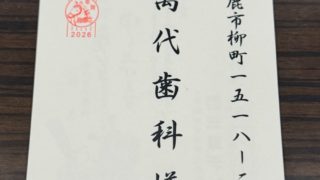 鹿市柳町一五一八ー
萬代歯科様
2026